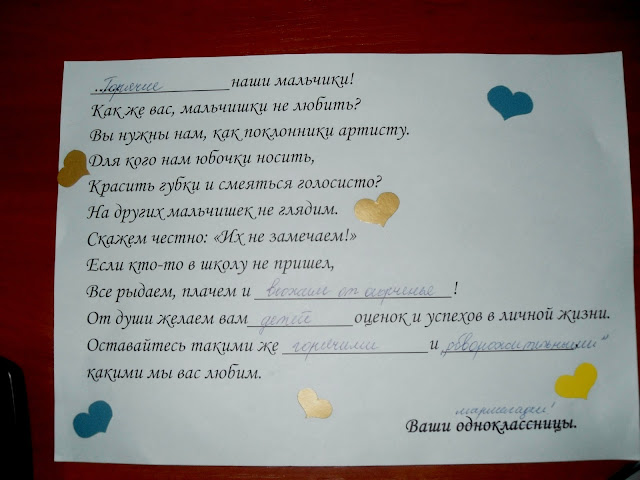 ..Горячие наши мальчики!
Как же вас, мальчишки не любить?
Вы нужны нам, как поклонники артисту.
Для кого нам юбочки носить,
Красить губки и смеяться голосисто?
На других мальчишек не глядим.
Скажем честно: «Их не замечаем!»
Если кто-то в школу не пришел,
Все рыдаем, плачем и от огорченья!
От души желаем вам детей оценок и успехов в личной жизни.
Оставайтесь такими же горячими и „обворожительными“
какими мы вас любим.
мармеладки!
Ваши одноклассницы.